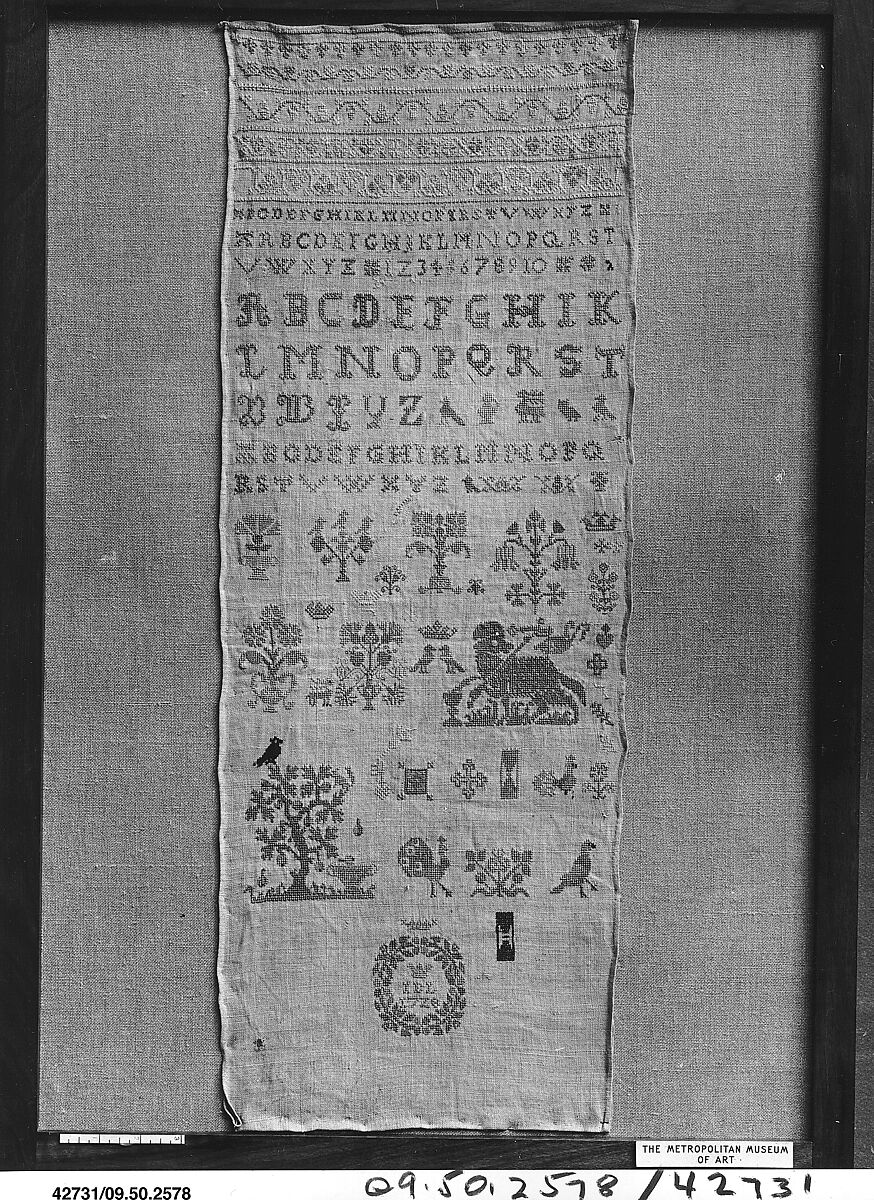 ABCDEFGHIKLMNOPQRSTVWXYZ
ABCDEFGHIKLMNOPQRST
VWXYZ 12345678910
ABCDEFGHIK
LMNOPQRST
VWXYZ
BCDEFGHIKLMNOPQ
RSTVWXYZ
IDL
1728
THE METROPOLITAN MUSEUM
OF ART
42731/09.50.2578
09.50.2578/42731